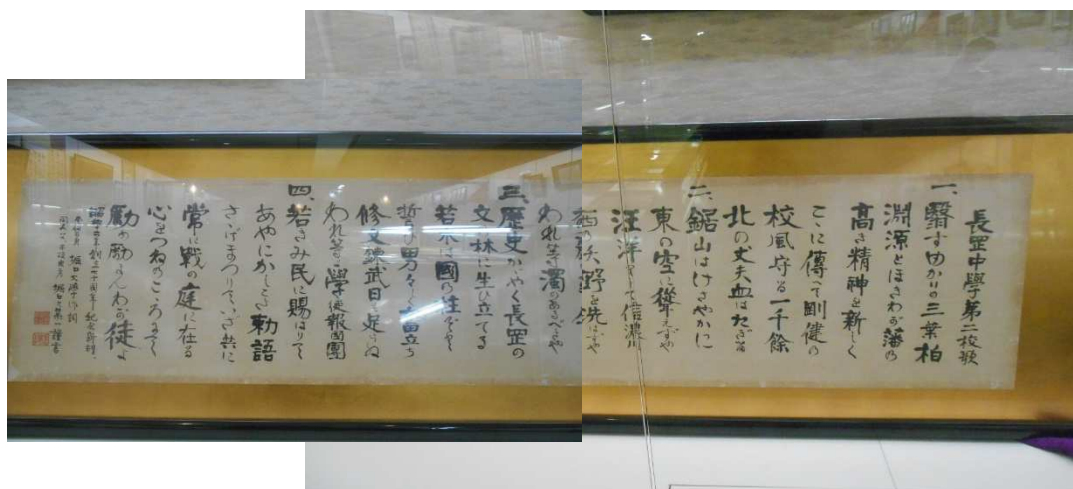 長岡中學第二校歌
一、翳すゆかりの三葉柏
淵源とほきわが藩の
高き精神を新しく
こゝに傳へて剛健の
校風守る一千餘
北の丈夫血はたぎる
二、鋸山はけざやかに
東の空に聳えずや
汪洋として信濃川
西の沃野を洗はずや
われ等濁のあるべきや
三、歴史かゞやく長岡の
文林に生ひ立てる
若木は國の柱ぞと
誓ひ男々しく奮立ち
修文練武日も足らぬ
われ等は學徒報國團
四、若きみ民に賜はりて
あやにかしこき勅語
さゝげまつりていざ共に
常に戰の庭に在る
心をつねのこゝろにて
勵め勵まんわが徒よ
堀口大學作詞